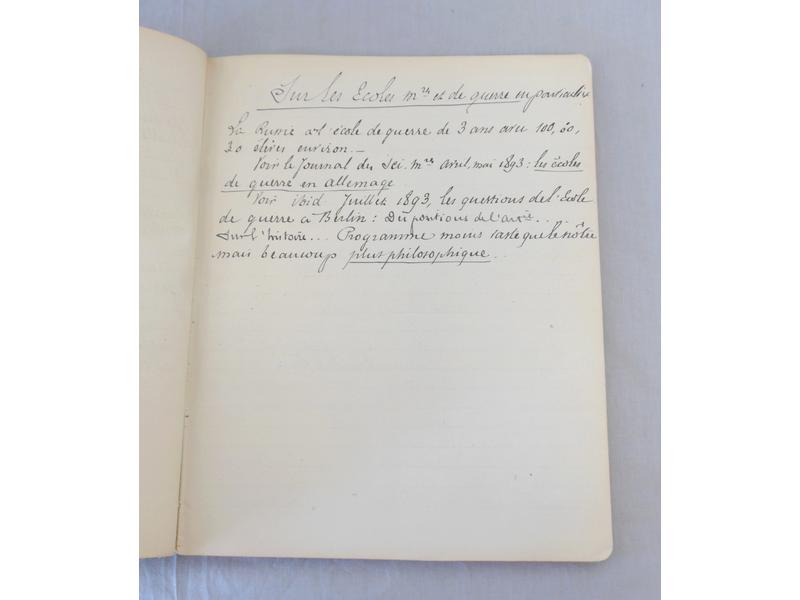 Sur les Ecoles mres et de guerre en particulier
La Russie a 1 école de guerre de 3 ans avec 100, 60,
30 élèves environ. —
Voir le Journal des Sci. mres avril, mai 1893 : les écoles
de guerre en allemagne.
Voir ibid Juillet 1893, les questions de l'Ecole
de guerre à Berlin : Dispositions de l'artie...
Sur l'histoire... Programme moins vaste que le nôtre
mais beaucoup plus philosophique...